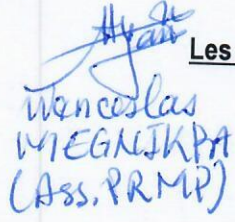 Les
Wenceslas
MEGNIKPA
(Ass. PRMP)